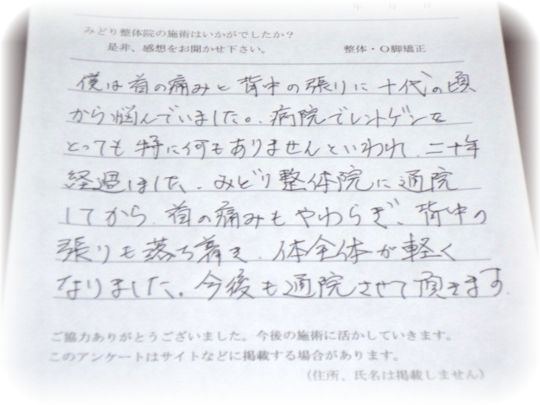 みどり整体院の施術はいかがでしたか?
是非、感想をお聞かせ下さい。 整体・O脚矯正
僕は首の痛みと背中の張りに十代の頃
から悩んでいました。病院でレントゲンを
とっても特に何もありませんといわれ、二十年
経過しました、みどり整体院に通院
してから、首の痛みもやわらぎ、背中の
張りも落ち着き、体全体が軽く
なりました。今後も通院させて頂きます。
ご協力ありがとうございました。今後の施術に活かしていきます。
このアンケートはサイトなどに掲載する場合があります。
(住所、氏名は掲載しません)